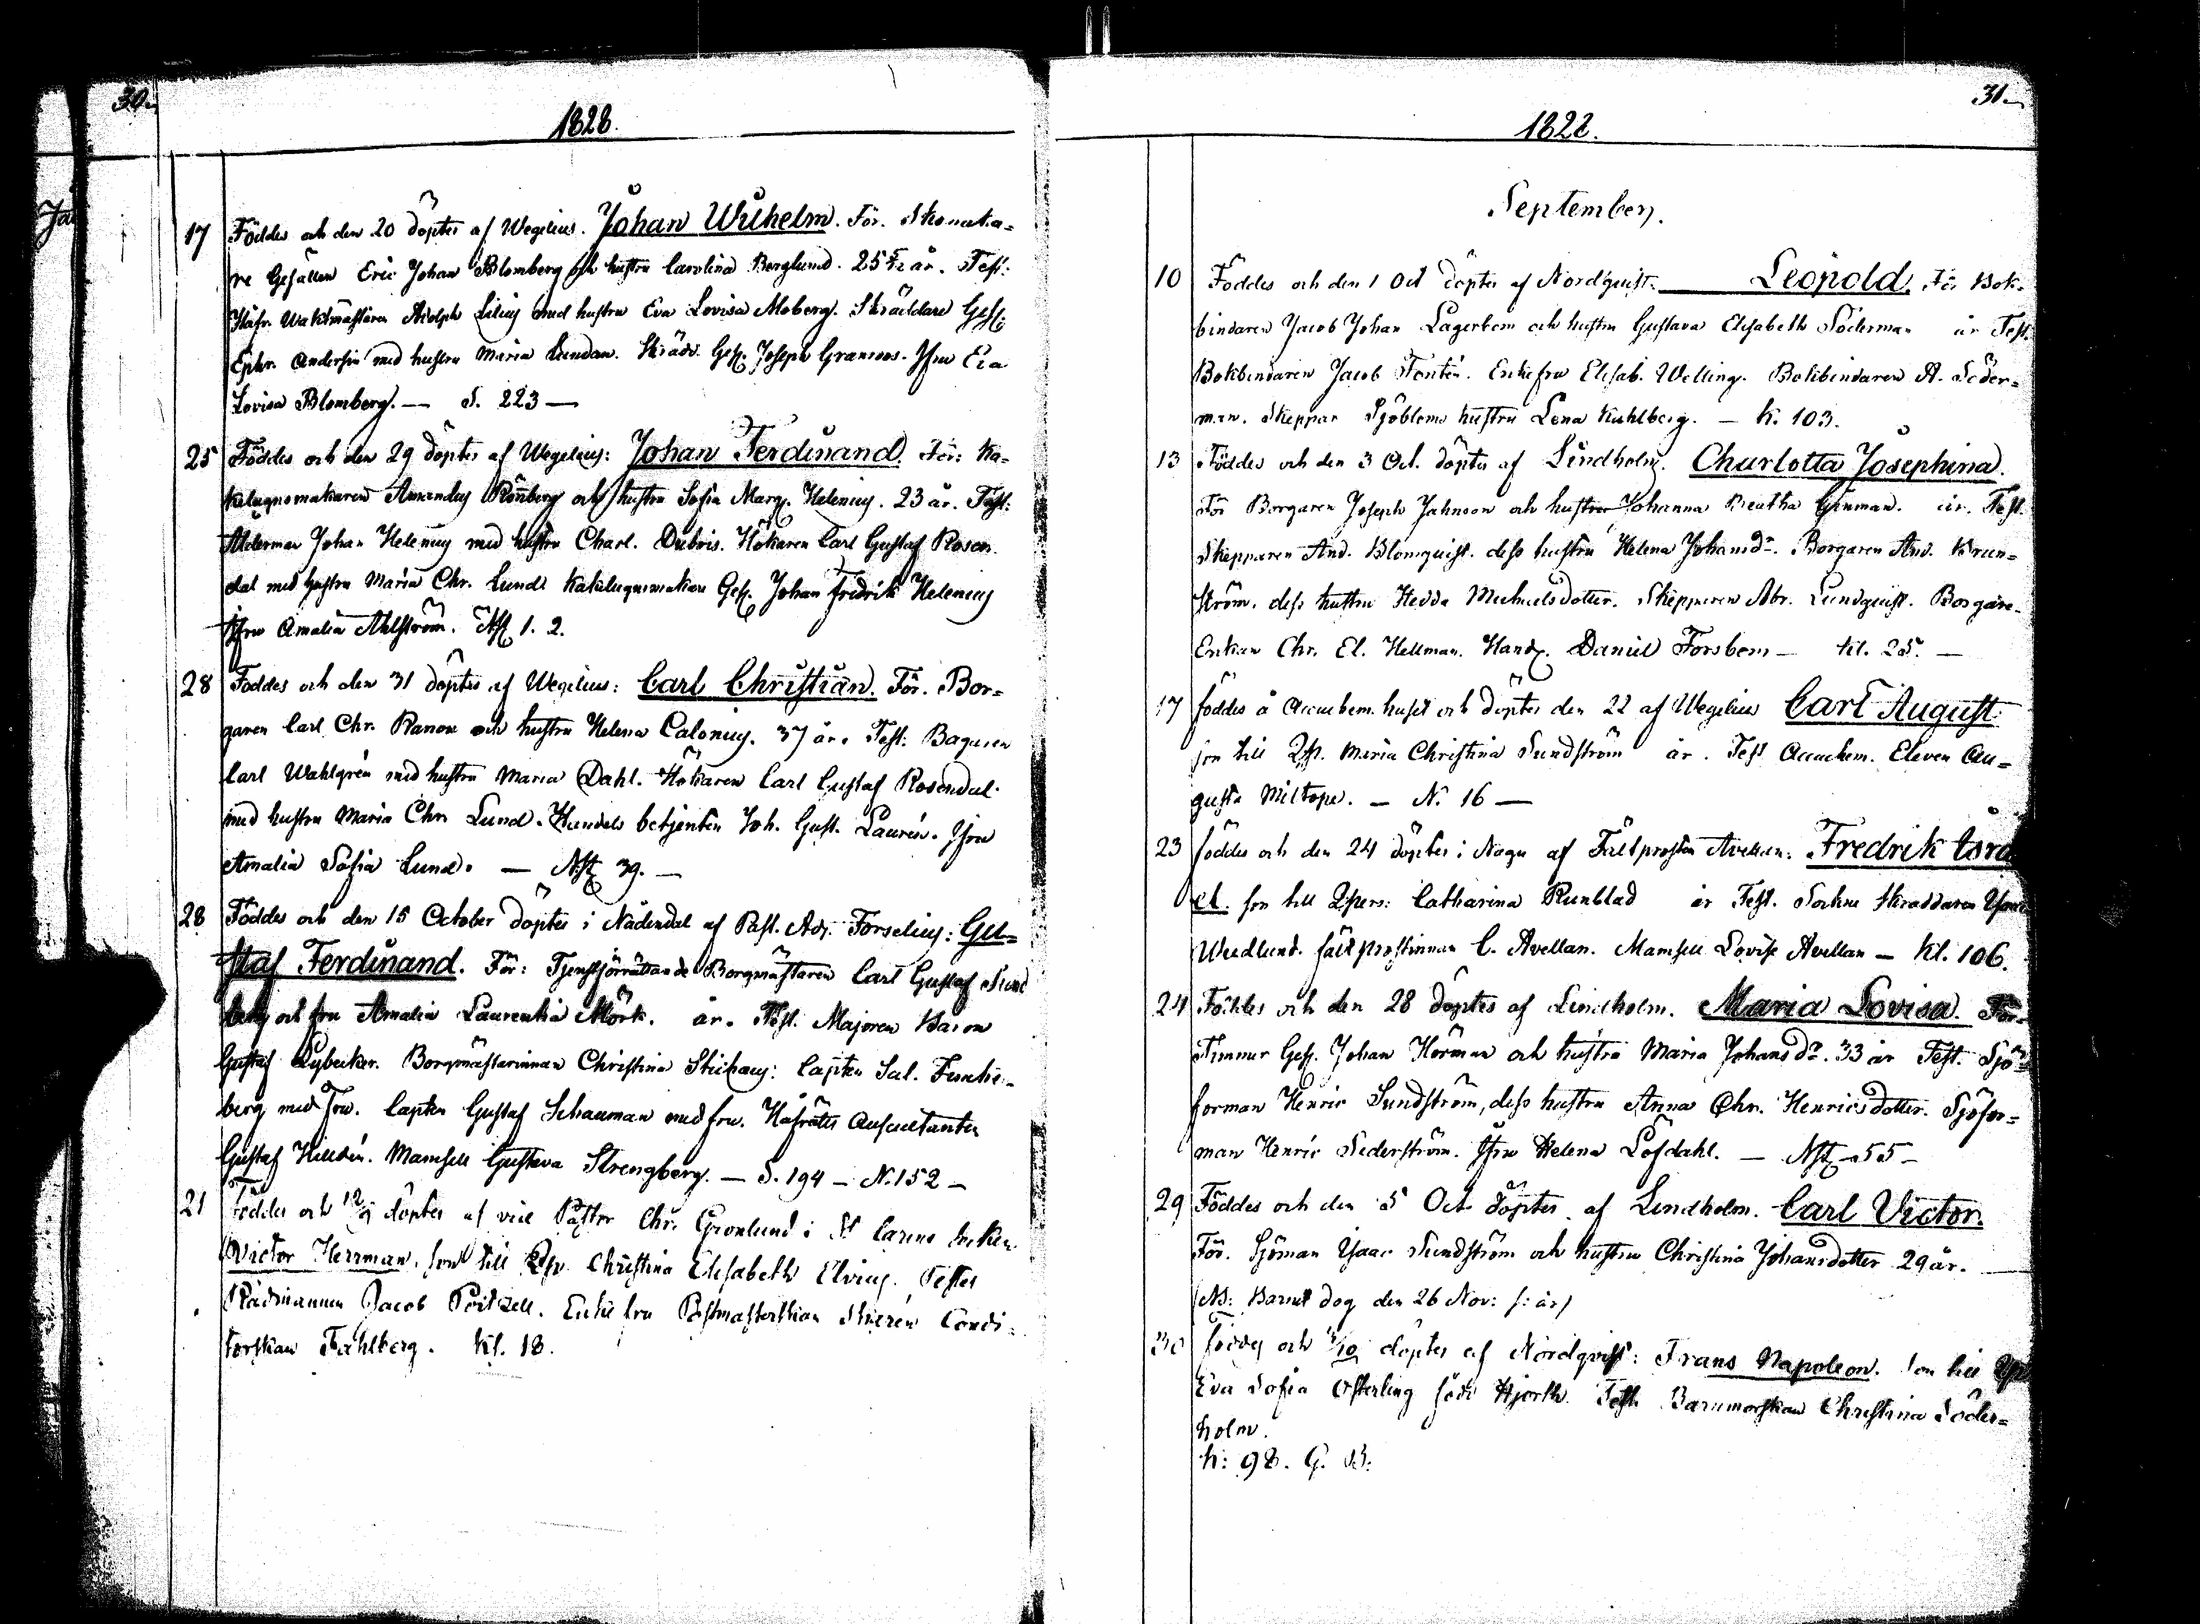 30.
1828.
17 Föddes och den 20 döptes af Wegelius. Johan Wilhelm. För. Skomaka=
re Gesällen Eric Johan Blomberg och hustru Carolina Berglund. 25 år. Test:
Håfr. Waktmästaren Adolph Lilius med hustru Eva Lovisa Moberg. Skräddare Gess:
Ephr. Anderssin med hustru Maria Lundan. Skrädd. Gess. Joseph Granroos. Jfru Eva
Lovisa Blomberg. — S. 223 —
25 Föddes och den 29 döptes af Wegelius: Johan Ferdinand. För: Ka=
kelugnsmakaren Amandus Rönberg och hustru Sofia Marg. Helenius. 23 år. Test:
Ålderman Johan Helenius med hustru Charl. Dubris. Hökaren Carl Gustaf Rosen
dal med hustru Maria Chr. Lund. Kakelugnsmakare Gess. Johan Fredrik Helenius
Jfru Amalia Ahlström. 1. 2.
28 Föddes och den 31 döptes af Wegelius: Carl Christian. För. Bor=
garen Carl Chr. Ranon och hustru Helena Calonius. 37 år. Test: Bagaren
Carl Wahlgrén med hustru Maria Dahl. Hökaren Carl Gustaf Rosendal
med hustru Maria Chr. Lund. Handels betjenten Joh. Gust. Laurén. Jfru
Amalia Sofia Lund. — 39. —
28 Föddes och den 15 October döptes i Nådendal af Past. Adj. Forselius: Gu=
staf Ferdinand. För: Tjenstförrättande Borgmästaren Carl Gustaf Sund
berg och fru Amalia Laurentia Mörk. år. Test. Majoren Baron
Gustaf Lybecker. Borgmästarinnan Christina Stichæus: Capten Sal.
berg med fru. Capten Gustaf Schauman med fru. Håfrätts Auscultanten
Gustaf Hilldén. Mamsell Gustava Strengberg. — S. 194 — N. 152 —
21 Föddes och 12/9 döptes af vice Pastor Chr. Grönlund i St Carins Socken
Victor Herrman. son till Qsp. Christina Elisabeth Elvius. Testes
Rådmannen Jacob Poitzell. Enke fru Postmästerskan Condi=
torskan Fahlberg. Kl. 18.
31.
1828.
September.
10 Föddes och den 1 Oct döptes af Nordquist. Leopold. För Bok=
bindaren Jacob Johan Lagerbom och hustru Gustava Elisabeth Söderman år Test.
Bokbindaren Jacob Fontén. Enkefru Elisab. Welling. Bokbindaren A. Söder=
man. Skeppar Sjöbloms hustru Lena Kuhlberg. — K. 103.
13 Föddes och den 3 Oct. döptes af Lindholm. Charlotta Josephina.
För Borgaren Joseph Jahnson och hustru Johanna Beatha Ginman. år. Test.
Skepparen And. Blomquist. dess hustru Helena Johansdr. Borgaren And. Krun=
ström. dess hustru Hedda Michaelsdotter. Skepparen Abr. Lundquist. Borgare
Enkan Chr. El. Hellman. Hand. Daniel Forsbom — Kl. 25. —
17 föddes å Accuchem. huset och döptes den 22 af Wegelius Carl August
son till Qsp. Maria Christina Sundström år. Test Accuchem. Eleven Au=
gusta Miltopé. — N. 16 —
23 föddes och den 24 döptes i Nagu af Fältprosten Avellan: Fredrik Isra
el. son till Qspers: Catharina Runblad år Test. Sockne Skräddaren
Wedlund. fältprostinnan C. Avellan. Mamsell Lovise Avellan — Kl. 106.
24 Föddes och den 28 döptes af Lindholm. Maria Lovisa. För.
Timmer Gess. Johan Hörman och hustru Maria Johansdr. 33 år Test. Sjö=
forman Henric Sundström, dess hustru Anna Chr. Henricsdotter. Sjöfor=
man Henric Sederström. Jfru Helena Löfdahl. — 55 —
29 Föddes och den 5 Oct. döptes af Lindholm. Carl Victor.
För. Sjöman Isaac Sundström och hustru Christina Johansdotter 29 år. —
NB: Barnet dog den 26 Nov:
30 Föddes och 3/10 döptes af Nordqvist: Frans Napoleon. Son till Qsp
Eva Sofia Österling född Hjorth. Test. Barnmorskan Christina Söder=
holm.
K: 98. G. B: